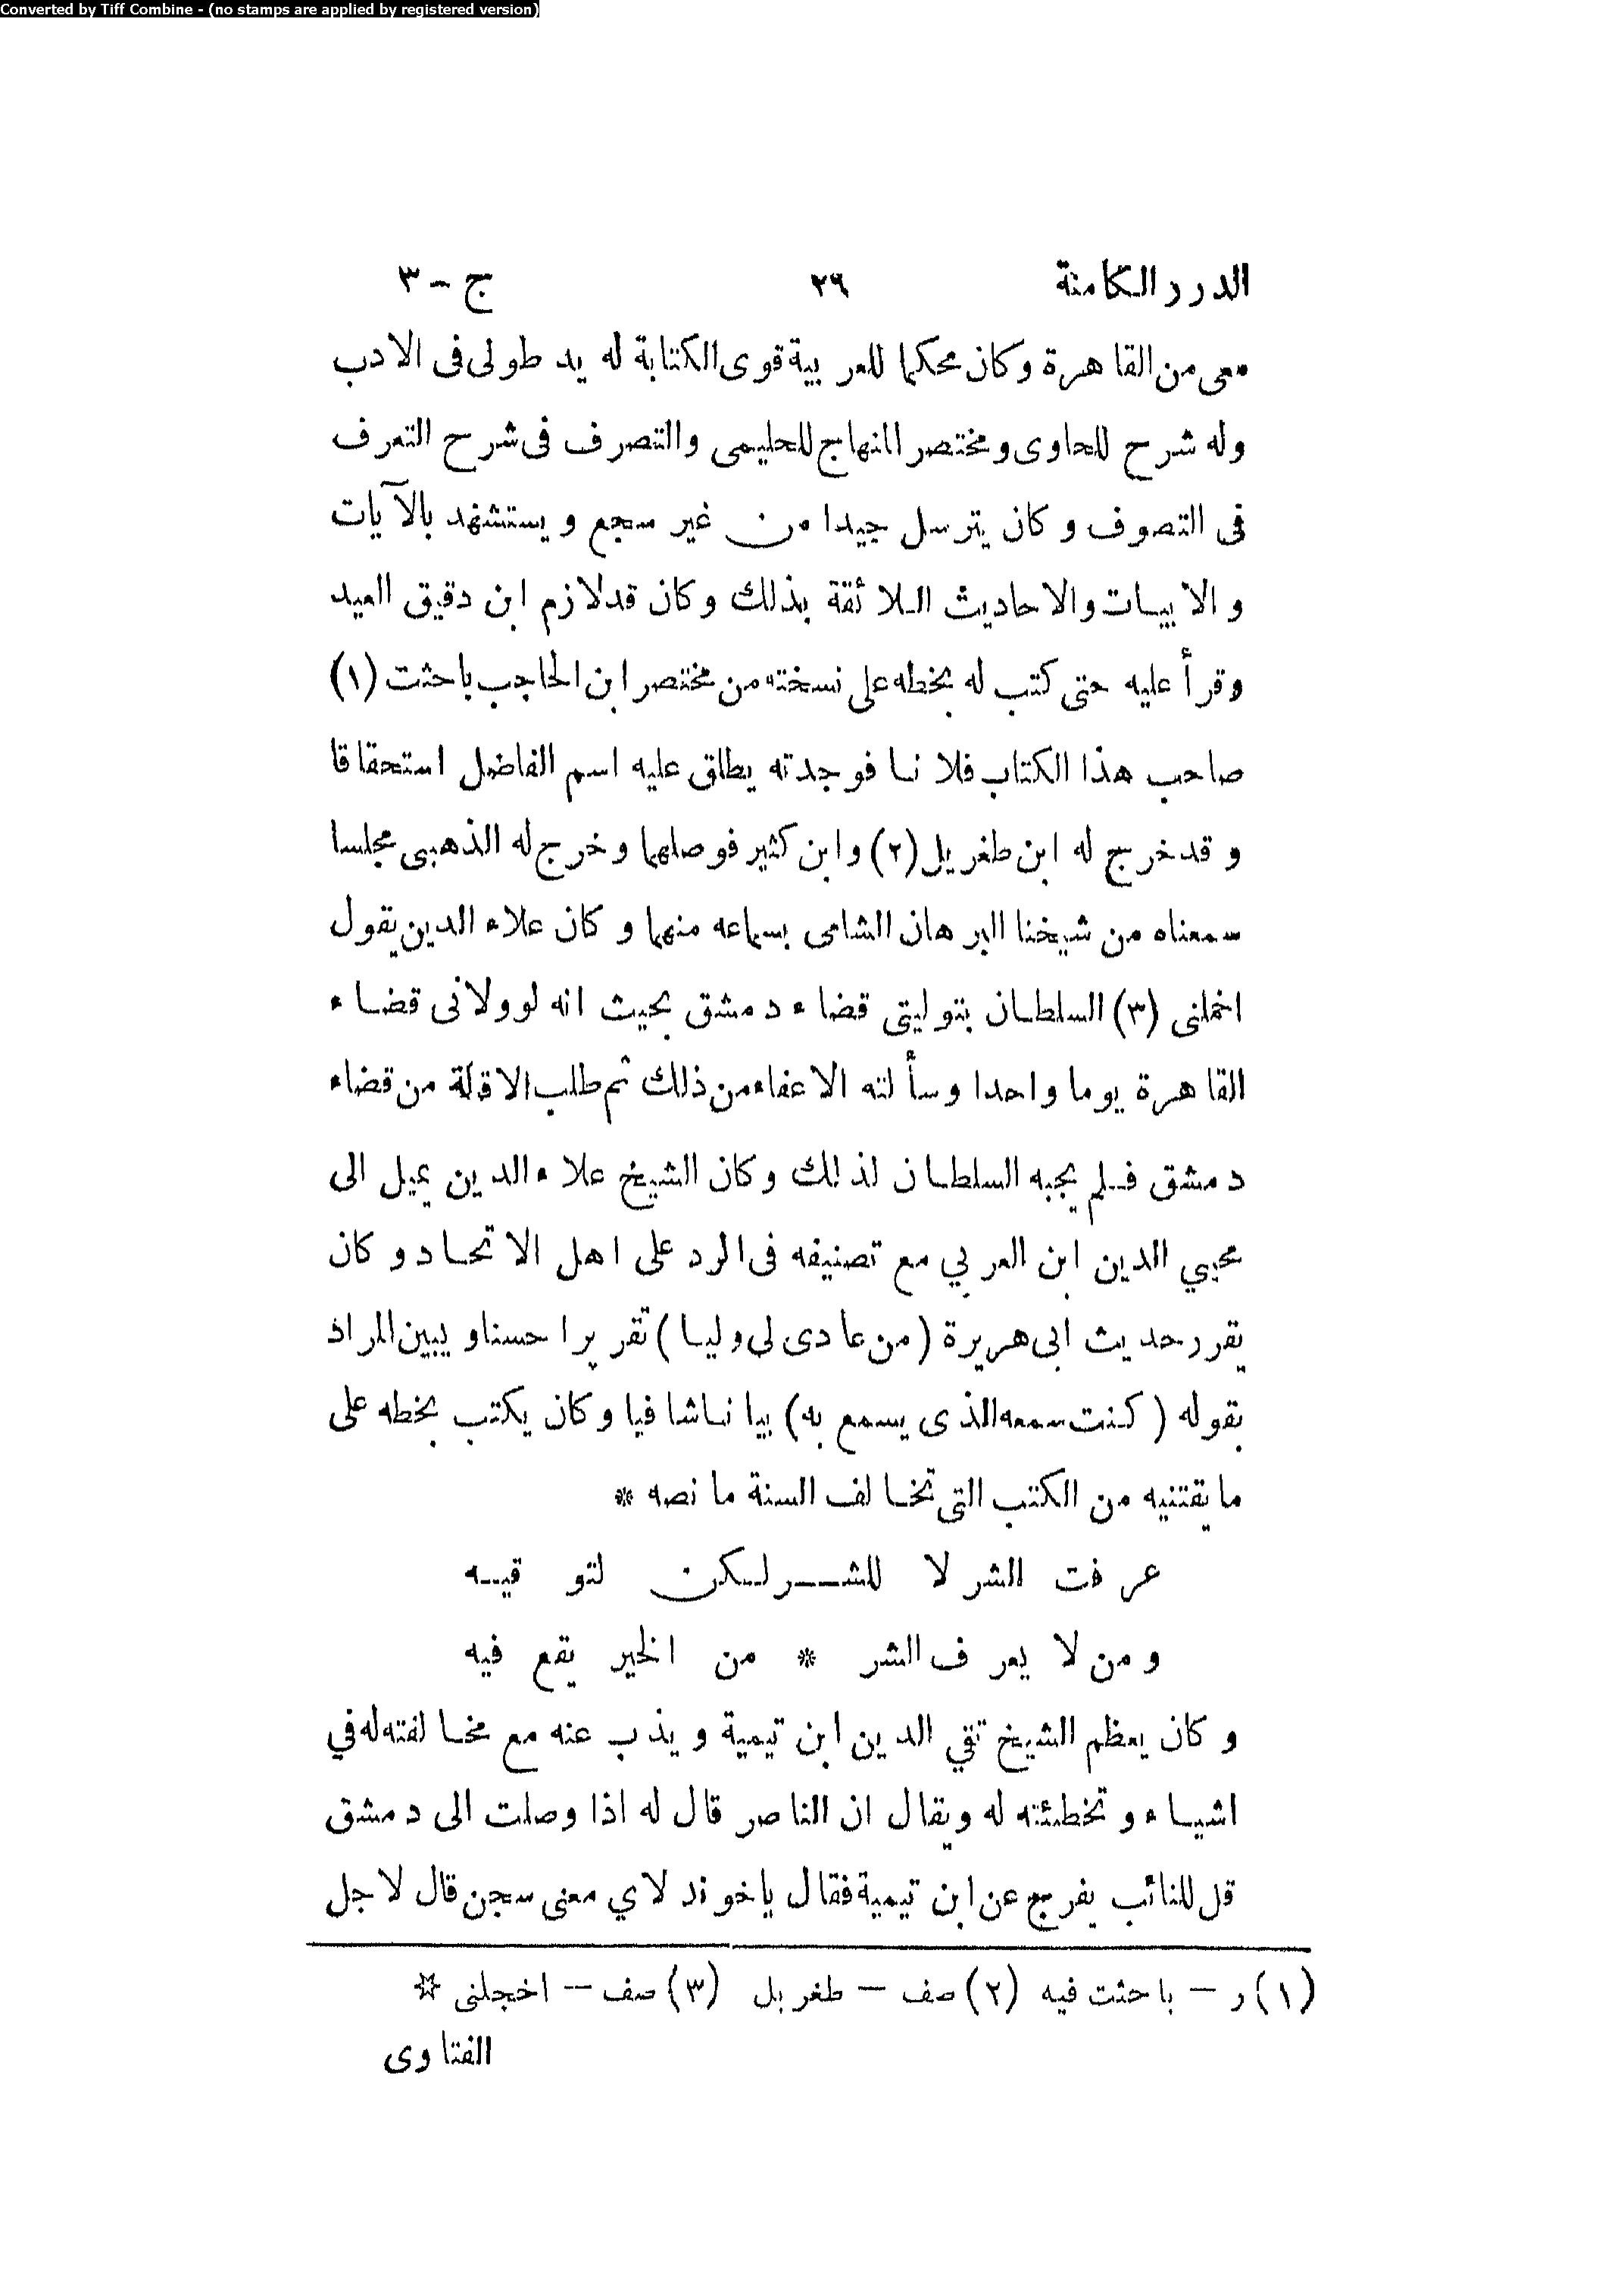 Converted by Tiff Combine - (no stamps are applied by registered version)
الدرر الكامنة ٢٦ ج - ٣
معى من القاهرة وكان محكما للعربية قوى الكتابة له يد طولى فى الادب
وله شرح للحاوى ومختصر المنهاج للحليمى والتصرف فى شرح التعرف
فى التصوف وكان يترسل جيدا من غير سجع ويستشهد بالآيات
والابيات والاحاديث اللائقة بذلك وكان قد لازم ابن دقيق العيد
وقرأ عليه حتى كتب له بخطه على نسخته من مختصر ابن الحاجب باحثت (١)
صاحب هذا الكتاب فلانا فوجدته يطلق عليه اسم الفاضل استحقاقا
وقد خرج له ابن طغريل (٢) وابن كثير فوصلهما وخرج له الذهبى مجلسا
سمعناه من شيخنا البرهان الشامى بسماعه منهما وكان علاء الدين يقول
اخملنى (٣) السلطان بتوليتى قضاء دمشق بحيث انه لو ولانى قضاء
القاهرة يوما واحدا وسألته الاعفاء من ذلك ثم طلب الاقالة من قضاء
دمشق فلم يجبه السلطان لذلك وكان الشيخ علاء الدين يميل الى
محيي الدين ابن العربي مع تصنيفه فى الرد على اهل الاتحاد وكان
يقرر حديث ابى هريرة (من عادى لى وليا) تقريرا حسنا ويبين المراد
بقوله (كنت سمعه الذى يسمع به) بيانا شافيا وكان يكتب بخطه على
ما يقتنيه من الكتب التى تخالف السنة ما نصه *
عرفت الشر لا للشر لكن لتوقيه
ومن لا يعرف الشر * من الخير يقع فيه
وكان يعظم الشيخ تقي الدين ابن تيمية ويذب عنه مع مخالفته له في
اشياء وتخطئته له ويقال ان الناصر قال له اذا وصلت الى دمشق
قل للنائب يفرج عن ابن تيمية فقال يا خوند لاي معنى سجن قال لاجل
(١) ر - باحثت فيه (٢) صف - طغر بل (٣) صف - اخجلنى *
الفتاوى